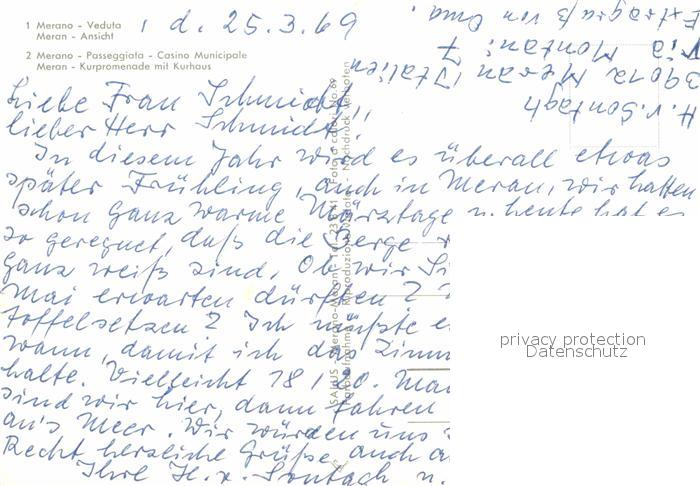 1 Merano - Veduta
Meran - Ansicht
2 Merano - Passeggiata - Casino Municipale
Meran - Kurpromenade mit Kurhaus
, d. 25.3.69
Liebe Frau Schmidt,
lieber Herr Schmidt!
In diesem Jahr wird es überall etwas
später Frühling, auch in Meran, wir hatten
schon ganz warme Märztage u. heute hat es
so geregnet, daß die Berge
ganz weiß sind. Ob wir
Mai erwarten dürfen?
toffelsetzen? Ich müßte
wann, damit ich das Zimm
halte. Vielleicht 18/20. Mai
sind wir hier, dann fahren
an's Meer. Wir würden uns
Recht herzliche Grüße auch
Ihre H. v. Sontagh u.
H. v. Sontagh
39012 Meran Italien
Via Montani 7
Extragruß von Oma.
Nachdruck verboten
privacy protection
Datenschutz